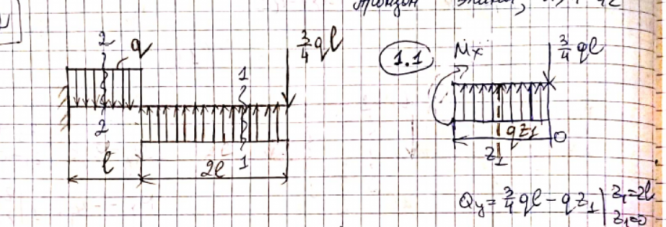 2 q
3/4 ql
1
2
1
l
2l
1.1 Mx
3/4 ql
qz₁
0
z₁
Qy = 3/4 ql − qz₁ | z₁=2l
z₁=0